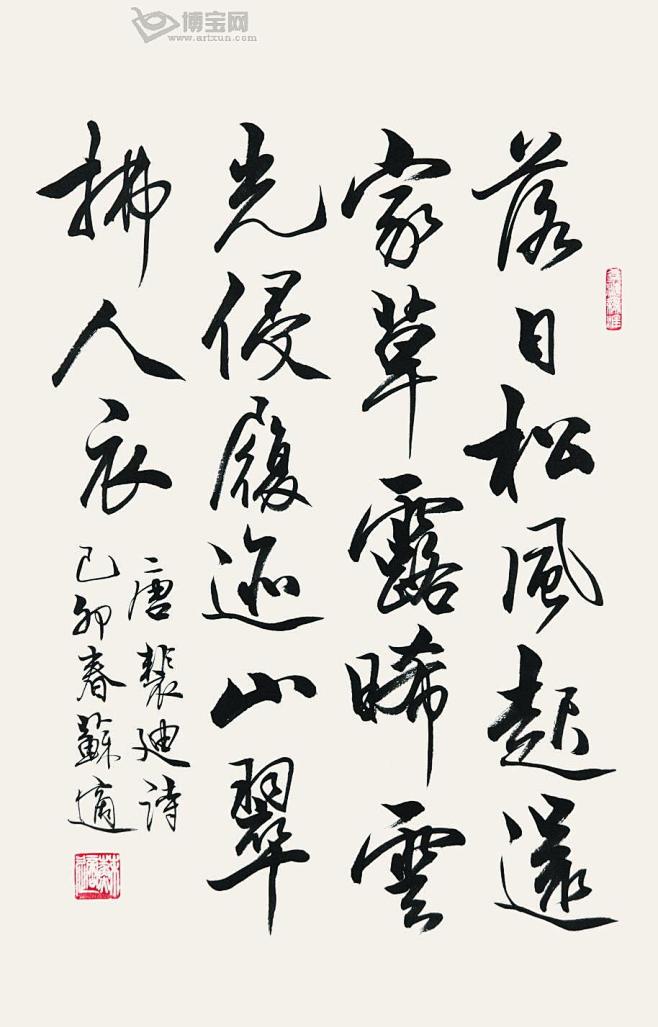 博宝网
www.artxun.com
落日松風起還
家草露晞雲
光侵履迹山翠
拂人衣
唐裴迪詩
己卯春蘇適